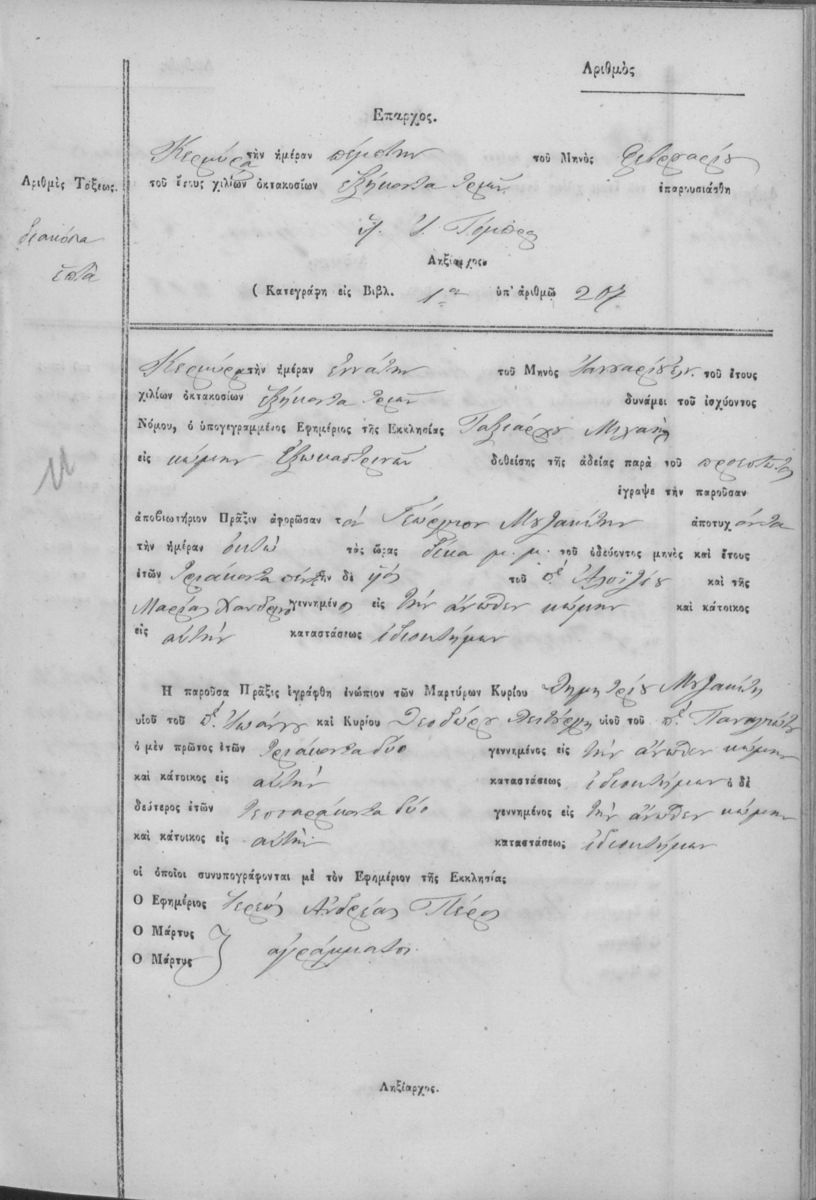 Αριθμὸς
Επαρχος.
Κερκύρα τὴν ἡμέραν πέμπτην τοῦ Μηνὸς Φεβρουαρίου
Αριθμὸς Τάξεως.
τοῦ ἔτους χιλίων ὀκτακοσίων ἑξήκοντα τριῶν ἐπαρουσιάσθη
διακόσια
ἑπτὰ
Ληξίαρχος
( Κατεγράφη εἰς Βιβλ. 1ον ὑπ' ἀριθμῷ 207
Κερκύρα τὴν ἡμέραν ἐννάτην τοῦ Μηνὸς Ἰανουαρίου τοῦ ἔτους
χιλίων ὀκτακοσίων ἑξήκοντα τριῶν δυνάμει τοῦ ἰσχύοντος
Νόμου, ὁ ὑπογεγραμμένος Εφημέριος τῆς Εκκλησίας Ταξιάρχου Μιχαὴλ
εἰς κώμην δοθείσης τῆς ἀδείας παρὰ τοῦ προεστῶτος
ἔγραψε τὴν παροῦσαν
ἀποβιωτήριον Πρᾶξιν ἀφορῶσαν τὸν Γεώργιον Μουζακίτην ἀποτυχόντα
τὴν ἡμέραν ὀκτὼ τὰς ὥρας δέκα μ. μ. τοῦ ὁδεύοντος μηνὸς καὶ ἔτους
ἐτῶν τριάκοντα πέντε ἦν δὲ υἱὸς τοῦ πὲ Ἀλοϊζίου καὶ τῆς
Μαρίας γεννημένος εἰς τὴν ἄνωθεν κώμην καὶ κάτοικος
εἰς αὐτὴν καταστάσεως ἰδιοκτήμων
Η παροῦσα Πρᾶξις ἐγράφθη ἐνώπιον τῶν Μαρτύρων Κυρίου Δημητρίου Μουζακίτη
υἱοῦ τοῦ πὲ Ἰωάννου καὶ Κυρίου Θεοδώρου υἱοῦ τοῦ πὲ Παναγιώτου
ὁ μὲν πρῶτος ἐτῶν τριάκοντα δύο γεννημένος εἰς τὴν ἄνωθεν κώμην
καὶ κάτοικος εἰς αὐτὴν καταστάσεως ἰδιοκτήμων ὁ δὲ
δεύτερος ἐτῶν τεσσαράκοντα δύο γεννημένος εἰς τὴν ἄνωθεν κώμην
καὶ κάτοικος εἰς αὐτὴν καταστάσεως ἰδιοκτήμων
οἱ ὁποῖοι συνυπογράφονται μὲ τὸν Εφημέριον τῆς Εκκλησίας
Ο Εφημέριος Ἱερεὺς Ἀνδρέας Πέρος
Ο Μάρτυς
ἀγράμματοι
Ο Μάρτυς
Ληξίαρχος.